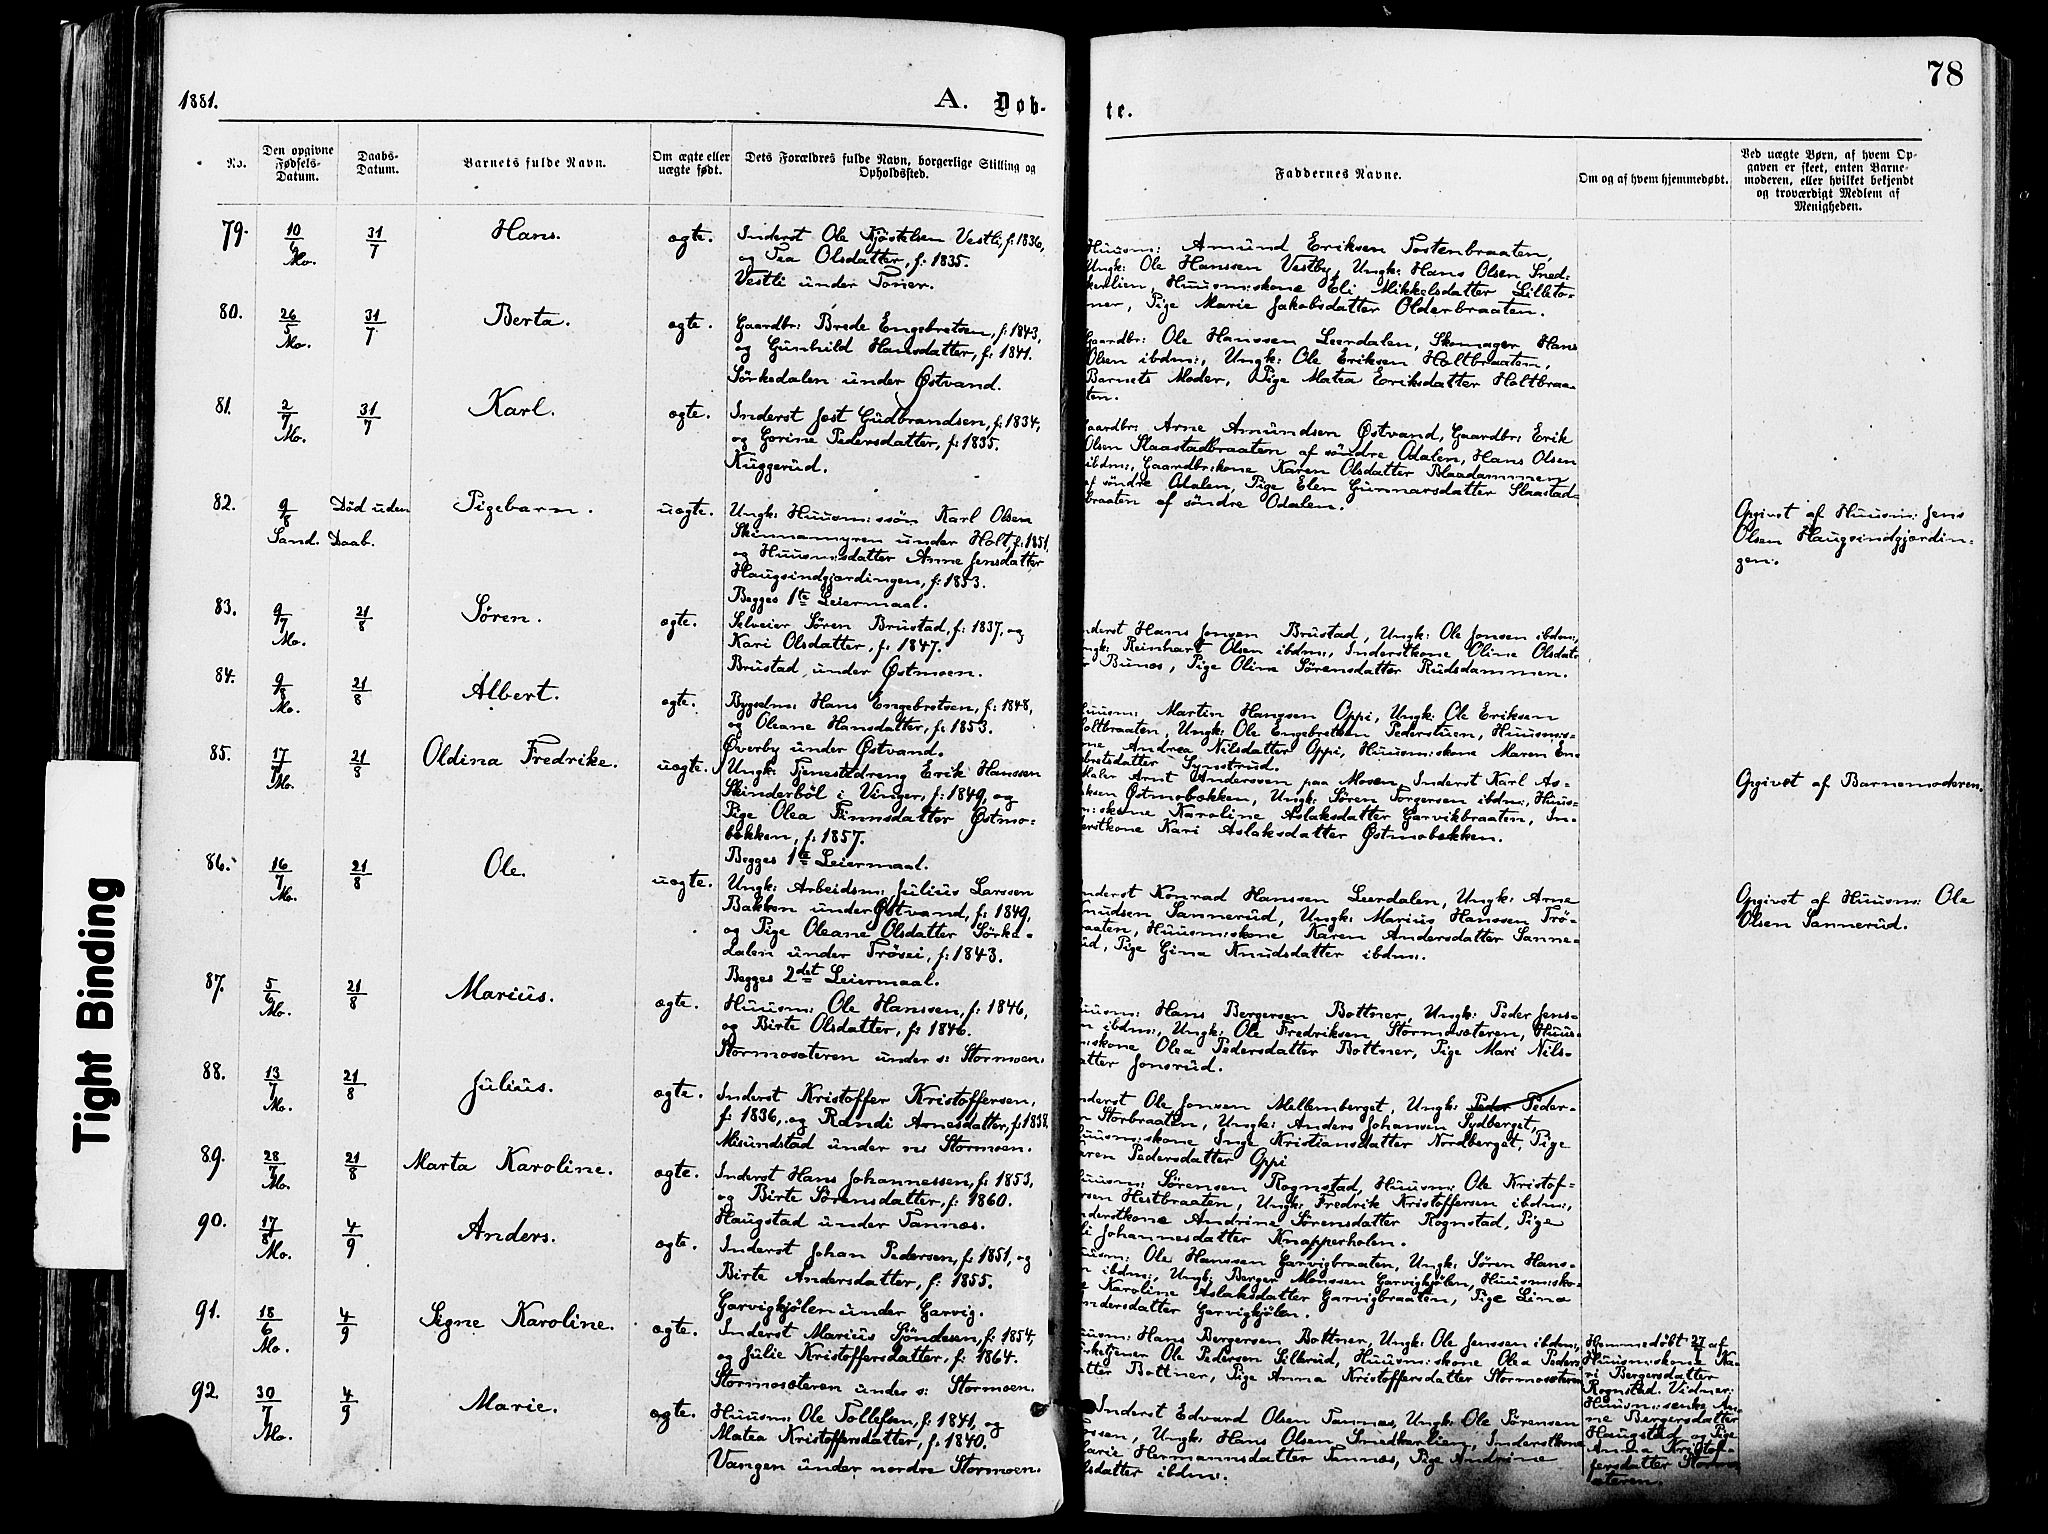 1881.
A. Døb-
te.
78
No.
Den opgivne
Fødsels-
Datum.
Daabs-
Datum.
Barnets fulde Navn.
Om ægte eller
uægte født.
Dets Forældres fulde Navn, borgerlige Stilling og
Opholdssted.
Faddernes Navne.
Om og af hvem hjemmedøbt.
Ved uægte Børn, af hvem Op-
gaven er skeet, enten Barne-
moderen, eller hvilket bekjendt
og troværdigt Medlem af
Menigheden.
79.
10/6
Mo.
31/7
Hans.
ægte.
Inderst Ole Kjöstelsen Vestli, f: 1836,
og Tea Olsdatter, f: 1835.
Vestli under Toner.
Huusm: Amund Eriksen Tostenbraaten,
Ungk: Ole Hanssen Vestby, Ungk: Hans Olsen Smed-
kerlien, Huusm:skone Eli Mikkelsdatter Lilleto-
ner, Pige Marie Jakobsdatter Olderbraaten.
80.
26/5
Mo.
31/7
Berta.
ægte.
Gaardbr: Brede Engebretsen, f: 1843,
og Gunhild Hansdatter, f: 1841.
Sörksdalen under Østvand.
Gaardbr: Ole Hanssen Leerdalen, Skomager Hans
Olsen ibdm:, Ungk: Ole Eriksen Holtbraaten,
Barnets Moder, Pige Matea Eriksdatter Holtbraa-
ten.
81.
2/7
Mo.
31/7
Karl.
ægte.
Inderst Jost Gudbrandsen, f: 1834,
og Gorine Pedersdatter, f: 1835.
Kuggerud.
Gaardbr: Arne Amundsen Østvand, Gaardbr: Erik
Olsen Slaastadbraaten af söndre Odalen, Hans Olsen
ibdm:, Gaardbr:kone Karen Olsdatter Blaadammen
af söndre Odalen, Pige Elen Gunnarsdatter Slaastad-
braaten af söndre Odalen.
82.
9/8
Sand.
Död uden
Daab.
Pigebarn.
uægte.
Ungk: Huusm:ssön Karl Olsen
Skinnarmyren under Holt, f: 1851,
og Huusm:sdatter Anne Jensdatter
Haugsindgjærdingen, f: 1853.
Begges 1te Leiermaal.
Opgivet af Huusm: Jens
Olsen Haugsindgjærdin-
gen.
83.
9/7
Mo.
21/8
Søren.
ægte.
Selveier Søren Brustad, f: 1837, og
Kari Olsdatter, f: 1847.
Brustad under Østmoen.
Inderst Hans Jonsen Brustad, Ungk: Ole Jonsen ibdm:,
Ungk: Reinhart Olsen ibdm:, Inderstkone Oline Olsdat-
r Bunes, Pige Oline Sørensdatter Rudsdammen.
84.
9/8
Mo.
21/8
Albert.
ægte.
Bygselm: Hans Engebretsen, f: 1848,
og Oleane Hansdatter, f: 1853.
Øverby under Østvand.
Huusm: Martin Hanssen Oppi, Ungk: Ole Eriksen
Holtbraaten, Ungk: Ole Engebretsen Pederstuen, Huusm:s-
kone Andrea Nilsdatter Oppi, Huusm:skone Maren En-
gebretsdatter Synstrud.
85.
17/7
Mo.
21/8
Oldina Fredrike.
uægte.
Ungk: Tjenestedreng Erik Hanssen
Skinderböl i Vinger, f: 1849, og
Pige Olea Finnsdatter Østmo-
bækken, f: 1857.
Begges 1te Leiermaal.
Maler Arnt Anderssen paa Mosen, Inderst Karl As-
laksen Østmobækken, Ungk: Søren Torgersen ibdm:, Huus-
m:skone Karoline Aslaksdatter Garvikbraaten, In-
derstkone Kari Aslaksdatter Østmobækken.
Opgivet af Barnemoderen.
86.
16/7
Mo.
21/8
Ole.
uægte.
Ungk: Arbeidsm: Julius Larssen
Bakken under Østvand, f: 1849,
og Pige Oleane Olsdatter Sörks-
dalen under Trösei, f: 1843.
Begges 2det Leiermaal.
Inderst Konrad Hanssen Leerdalen, Ungk: Arne
Knudsen Sannerud, Ungk: Marius Hanssen Trö-
raaten, Huusm:skone Karen Andersdatter Sanne-
rud, Pige Gina Knudsdatter ibdm:.
Opgivet af Huusm: Ole
Olsen Sannerud.
87.
5/6
Mo.
21/8
Marius.
ægte.
Huusm: Ole Hanssen, f: 1846,
og Birte Olsdatter, f: 1846.
Stormosæteren under s: Stormoen.
Huusm: Hans Bergersen Bottner, Ungk: Peder Jens-
n ibdm:, Ungk: Ole Fredriksen Stormosæteren, Huus-
m:skone Olea Pedersdatter Bottner, Pige Mari Nils-
datter Jonsrud.
88.
13/7
Mo.
21/8
Julius.
ægte.
Inderst Kristoffer Kristoffersen,
f: 1836, og Randi Arnesdatter, f: 1838.
Misundstad under n: Stormoen.
Inderst Ole Jonsen Mellemberget, Ungk: Peder Peder-
n Storbraaten, Ungk: Anders Johansen Sydberget,
Huusm:skone Inge Kristiansdatter Nordberget, Pige
Karen Pedersdatter Oppi
89.
28/7
Mo.
21/8
Marta Karoline.
ægte.
Inderst Hans Johannessen, f: 1853,
og Birte Sørensdatter, f: 1860.
Haugstad under Tannæs.
Huusm: Sørensen Rognstad, Huusm: Ole Kristof-
fersen Hestbraaten, Ungk: Fredrik Kristoffersen ibdm:,
Inderstkone Andrine Sørensdatter Rognstad, Pige
li Johannesdatter Knapperholen.
90.
17/8
Mo.
4/9
Anders.
ægte.
Inderst Johan Pedersen, f: 1851, og
Birte Andersdatter, f: 1855.
Garvigkjölen under Garvig.
Huusm: Ole Hanssen Garvigbraaten, Ungk: Søren Hans-
n ibdm:, Ungk: Berger Monssen Garvigkjölen, Huusm:sko-
e Karoline Aslaksdatter Garvigbraaten, Pige Lina
Andersdatter Garvigkjölen.
91.
18/6
Mo.
4/9
Signe Karoline.
ægte.
Inderst Marius Sjöndesen, f: 1854,
og Julie Kristoffersdatter, f: 1864.
Stormosæteren under s: Stormoen.
Huusm: Hans Bergersen Bottner, Ungk: Ole Jenssen ibdm:,
Kirketjener Ole Pedersen Silkrud, Huusm:skone Olea Peders-
datter Bottner, Pige Anna Kristoffersdatter Stormosæteren
Hjemmedöbt 2/7 af
Huusm:skone Ka-
ri Bergersdatter
Rognstad. Vidner:
Huusm:senke An-
ne Bergersdatter
Haugstad og Pige
Anna Kristof-
fersdatter Stormo-
sæteren.
92.
30/7
Mo.
4/9
Marie.
ægte.
Huusm: Ole Tollefsen, f: 1841, og
Matea Kristoffersdatter, f: 1840.
Vangen under nordre Stormoen.
Inderst Edvard Olsen Tannæs, Ungk: Ole Sørensen
Ungk: Hans Olsen Smedkerlien, Inderstkone
Marie Hermannsdatter Tannæs, Pige Andrine
Olsdatter ibdm:
Tight Binding